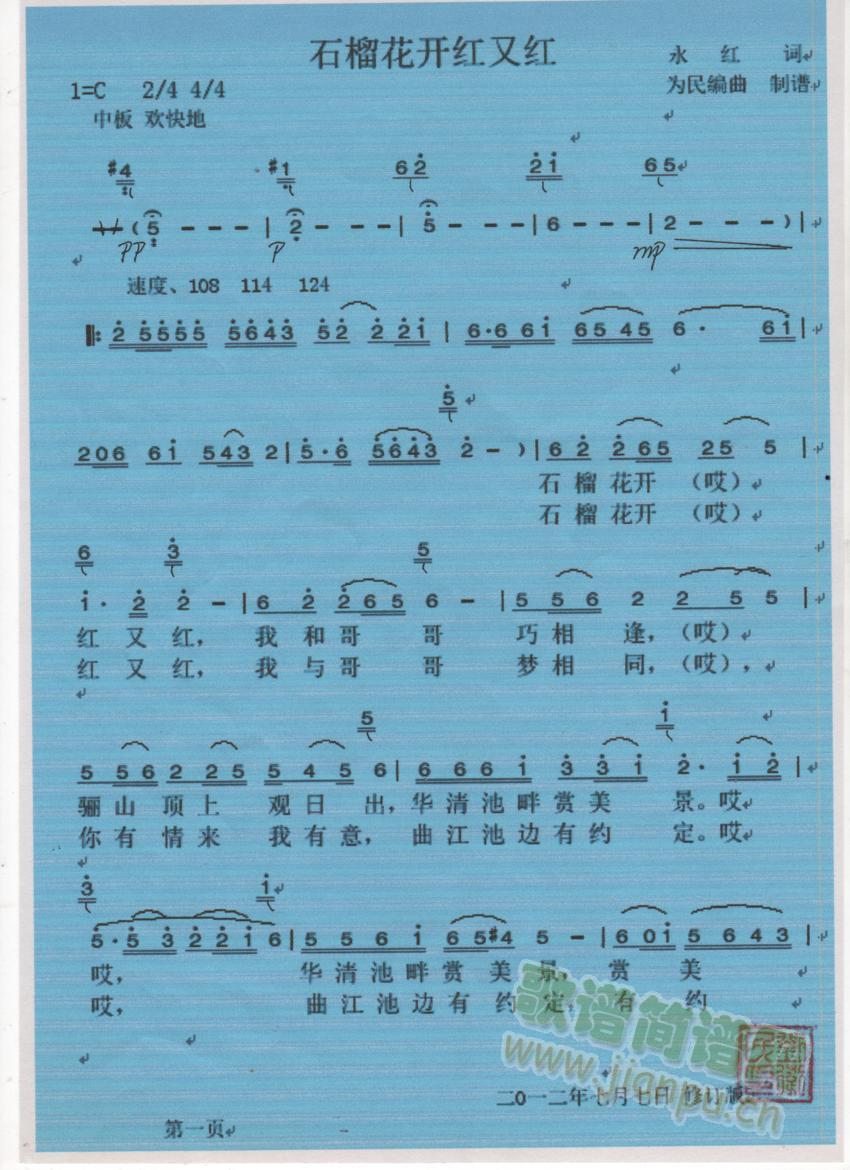 石榴花开红又红
永 红 词
1=C 2/4 4/4
为民编曲 制谱
中板 欢快地
#4 #1 62 21 65
サ ( 5 - - - | 2 - - - | 5 - - - | 6 - - - | 2 - - - ) |
pp p mp
速度、108 114 124
‖: 2 5555 5643 52 2 21 | 6·6 61 65 45 6· 61 |
5
206 61 543 2 | 5·6 5643 2 - ) | 62 265 25 5
石 榴 花开 (哎)
石 榴 花开 (哎)
6 3 5
1· 2 2 - | 6 2 265 6 - | 5 56 2 2 5 5 |
红 又 红, 我 和 哥 哥 巧 相 逢,(哎)
红 又 红, 我 与 哥 哥 梦 相 同,(哎),
5 1
5 56 2 25 5 4 5 6 | 6 6 6 1 3 31 2· 12 |
骊 山 顶 上 观 日 出, 华 清 池 畔 赏 美 景。哎
你 有 情 来 我 有 意, 曲 江 池 边 有 约 定。哎
3 1
5·5 3 2 21 6 | 5 5 6 1 65#4 5 - | 601 5 643 |
哎, 华 清 池 畔 赏 美 景, 赏 美
哎, 曲 江 池 边 有 约 定, 有 约
歌谱简谱
www.jianpu.cn
二0一二年七月七日 修订版
第一页